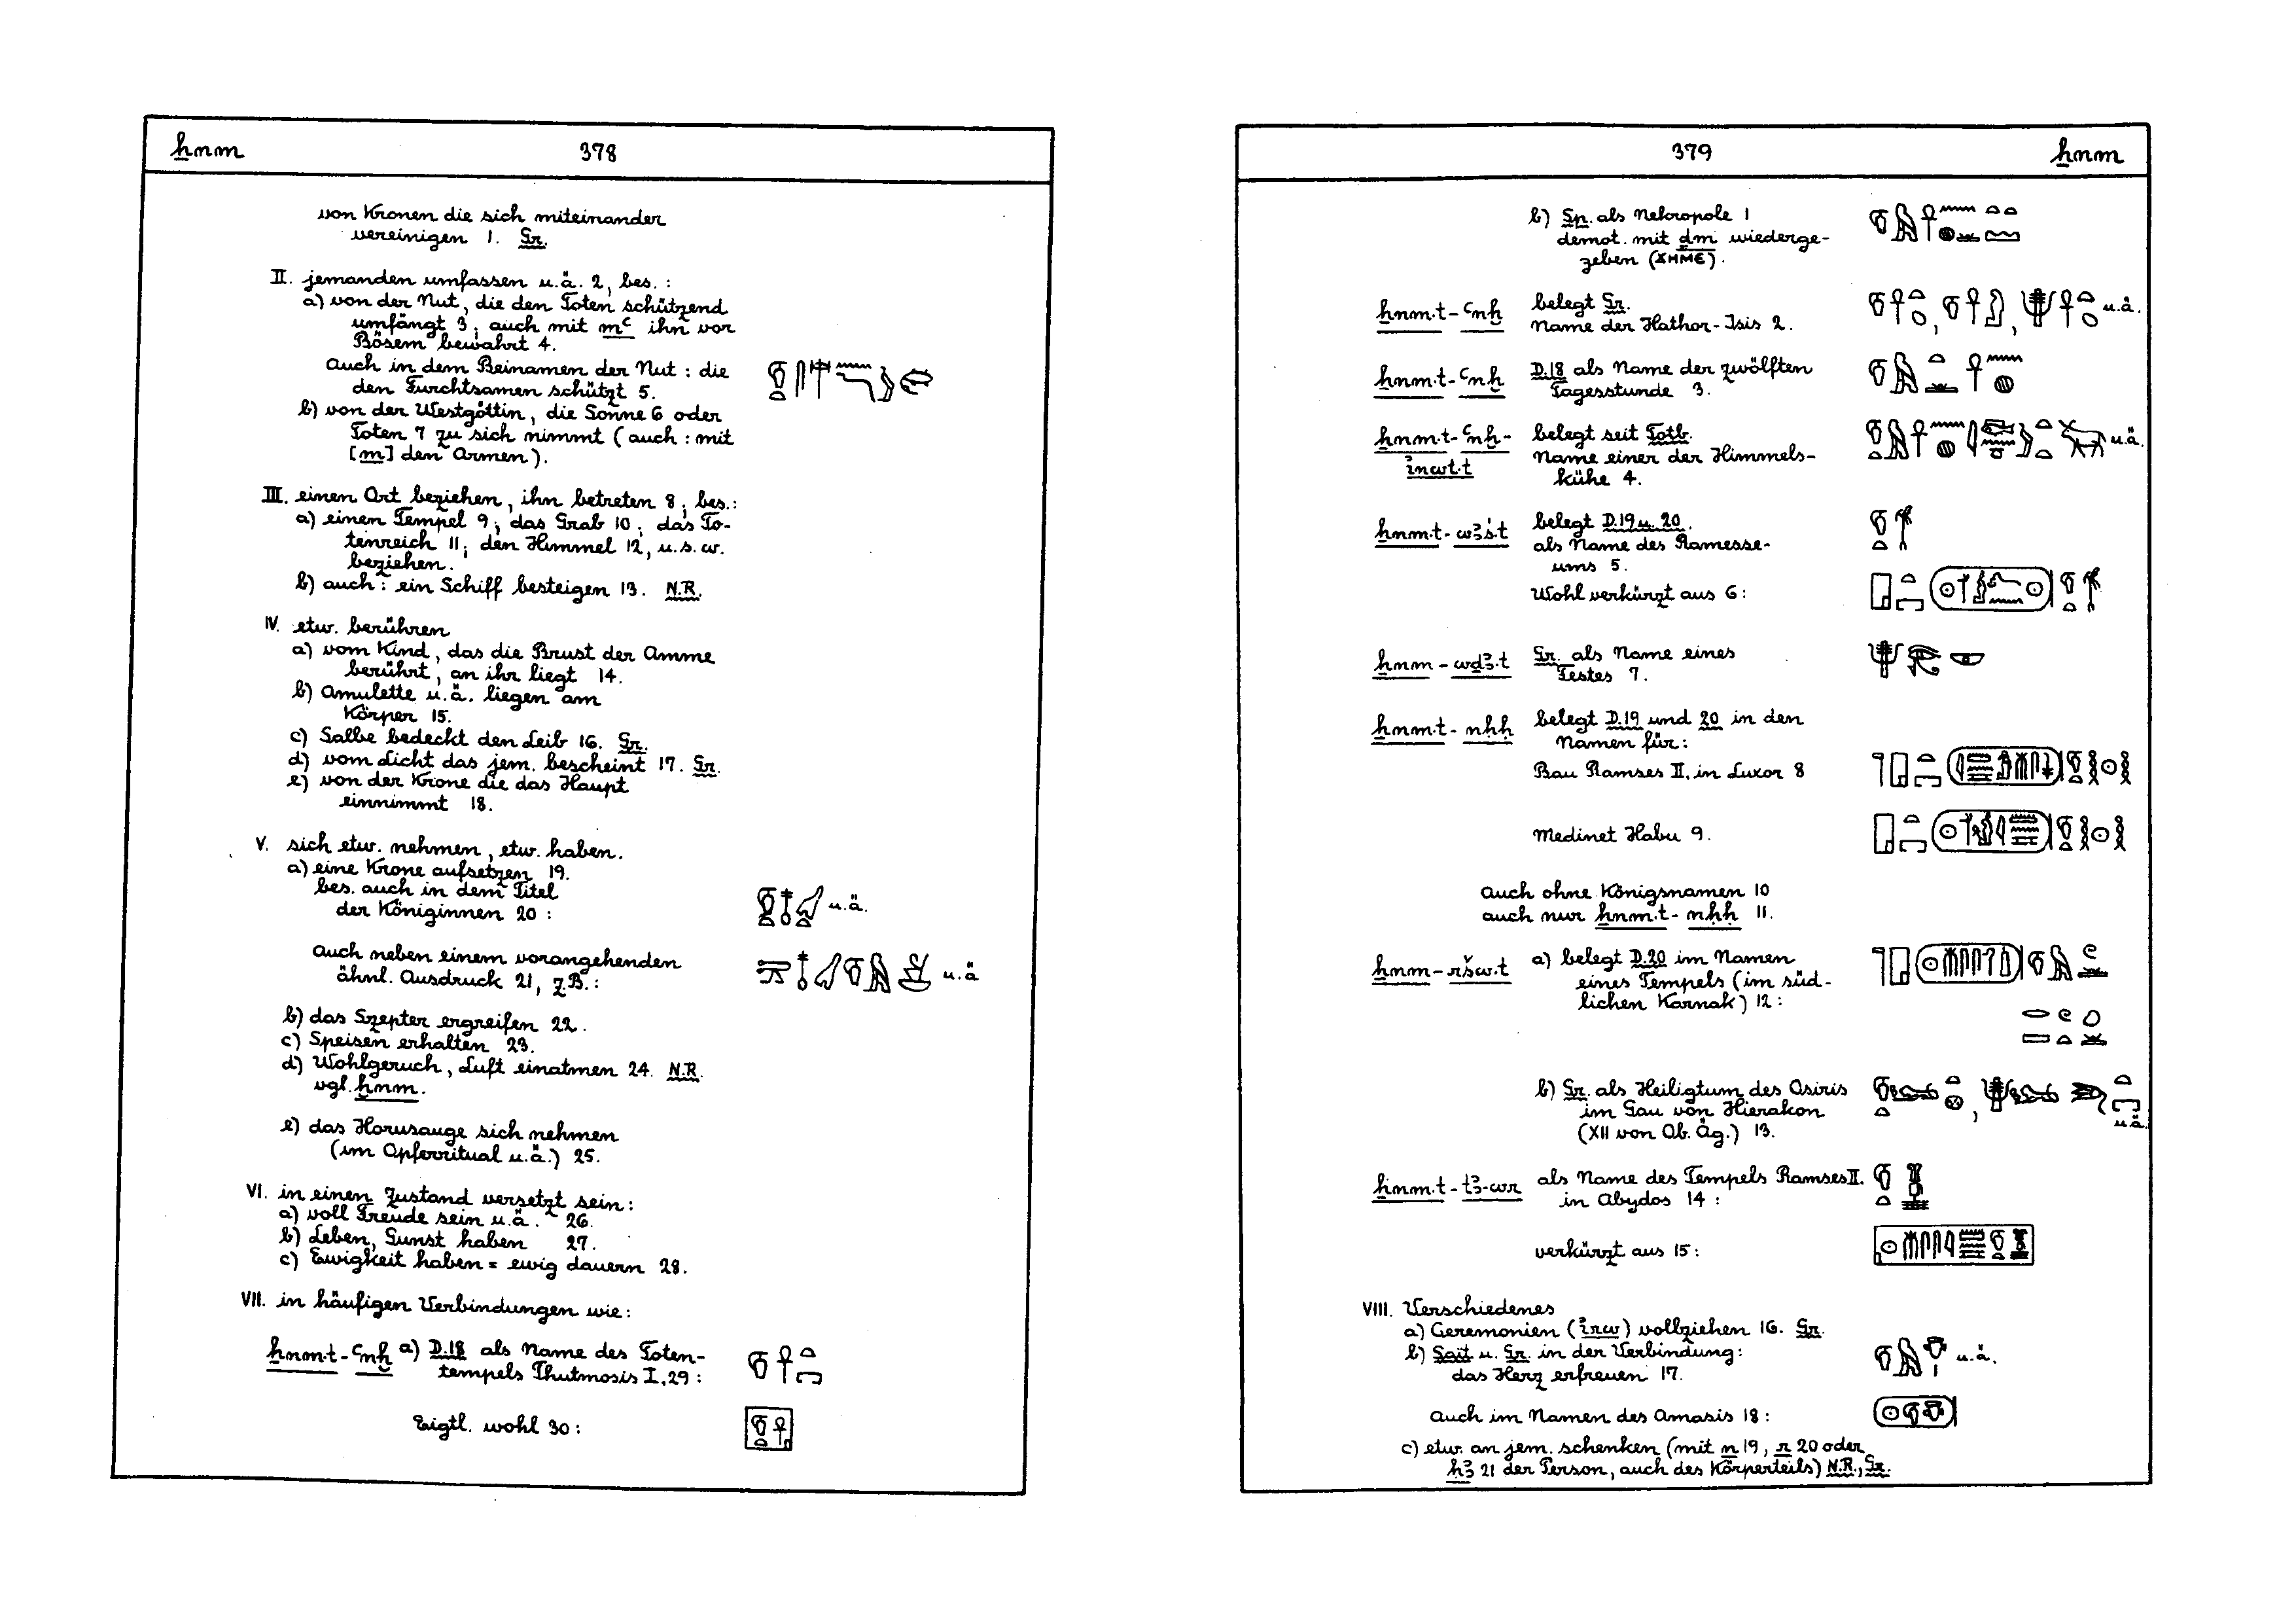 ẖnm 378
von Kronen die sich miteinander
vereinigen 1. Gr.
II. jemanden umfassen u.ä. 2, bes.:
a) von der Nut, die den Toten schützend
umfängt 3; auch mit mꜥ ihn vor
Bösem bewahrt 4.
Auch in dem Beinamen der Nut: die
den Furchtsamen schützt 5.
b) von der Westgöttin, die Sonne 6 oder
Toten 7 zu sich nimmt (auch: mit
[m] den Armen).
III. einen Ort beziehen, ihn betreten 8; bes.:
a) einen Tempel 9; das Grab 10; das To-
tenreich 11; den Himmel 12, u.s.w.
beziehen.
b) auch: ein Schiff besteigen 13. N.R.
IV. etw. berühren
a) vom Kind, das die Brust der Amme
berührt, an ihr liegt 14.
b) Amulette u.ä. liegen am
Körper 15.
c) Salbe bedeckt den Leib 16. Gr.
d) vom Licht das jem. bescheint 17. Gr.
e) von der Krone die das Haupt
einnimmt 18.
V. sich etw. nehmen, etw. haben.
a) eine Krone aufsetzen 19.
bes. auch in dem Titel
der Königinnen 20: u.ä.
Auch neben einem vorangehenden
ähnl. Ausdruck 21, z.B.: u.ä
b) das Szepter ergreifen 22.
c) Speisen erhalten 23.
d) Wohlgeruch, Luft einatmen 24. N.R.
vgl. ẖnm.
e) das Horusauge sich nehmen
(im Opferritual u.ä.) 25.
VI. in einen Zustand versetzt sein:
a) voll Freude sein u.ä. 26.
b) Leben, Gunst haben 27.
c) Ewigkeit haben = ewig dauern 28.
VII. in häufigen Verbindungen wie:
ẖnm.t-ꜥnḫ a) D.18 als Name des Toten-
tempels Thutmosis I, 29:
Eigtl. wohl 30:
379 ẖnm
b) Sp. als Nekropole 1
demot. mit dm wiederge-
geben (ϪΗΜЄ).
ẖnm.t-ꜥnḫ belegt Gr.
Name der Hathor-Isis 2. u.ä.
ẖnm.t-ꜥnḫ D.18 als Name der zwölften
Tagesstunde 3.
ẖnm.t-ꜥnḫ-
inwt.t
belegt seit Totb.
Name einer der Himmels-
kühe 4. u.ä.
ẖnm.t-wꜣś.t belegt D.19 u. 20.
als Name des Ramesse-
ums 5.
Wohl verkürzt aus 6:
ẖnm-wdꜣ.t Gr. als Name eines
Festes 7.
ẖnm.t-nḥḥ belegt D.19 und 20 in den
Namen für:
Bau Ramses II. in Luxor 8
Medinet Habu 9.
Auch ohne Königsnamen 10
auch nur ẖnm.t-nḥḥ 11.
ẖnm-ršw.t a) belegt D.20 im Namen
eines Tempels (im süd-
lichen Karnak) 12:
b) Gr. als Heiligtum des Osiris
im Gau von Hierakon
(XII von Ob. Äg.) 13. u.ä.
ẖnm.t-tꜣ-wr als Name des Tempels Ramses II.
in Abydos 14:
verkürzt aus 15:
VIII. Verschiedenes
a) Ceremonien (irw) vollziehen 16. Gr.
b) Sait u. Gr. in der Verbindung:
das Herz erfreuen 17. u.ä.
Auch im Namen des Amasis 18:
c) etw. an jem. schenken (mit n 19, r 20 oder
ḥꜣ 21 der Person, auch des Körperteils) N.R., Gr.